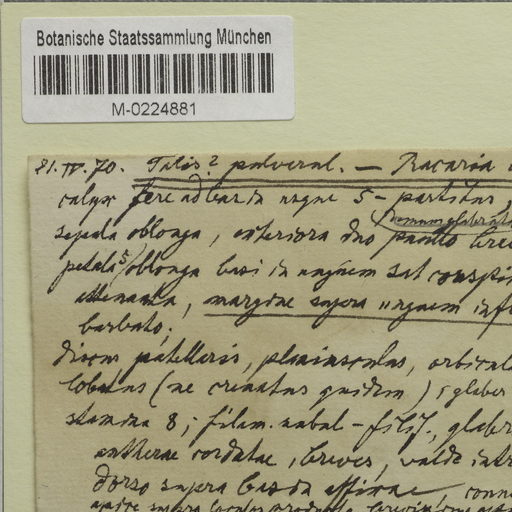 Botanische Staatssammlung München
M-0224881
21. IV. 70. Talis? pulverul. — Racaria
calyx fere ad basin usque 5-partitus,
demum glabrata
sepala oblonga, exteriora duo paullo brev
petala 5, oblonga basi in unguem sat conspi
attenuata, margine supra unguem inf
barbato;
discus patellaris, planiusculus, orbicul
lobatus (ne crenatus quidem), glaber
stamina 8; filam. subul-filif., glabr
antherae cordatae, breves, valde intr
dorso supra basin affixae, conn
apice supra loculos